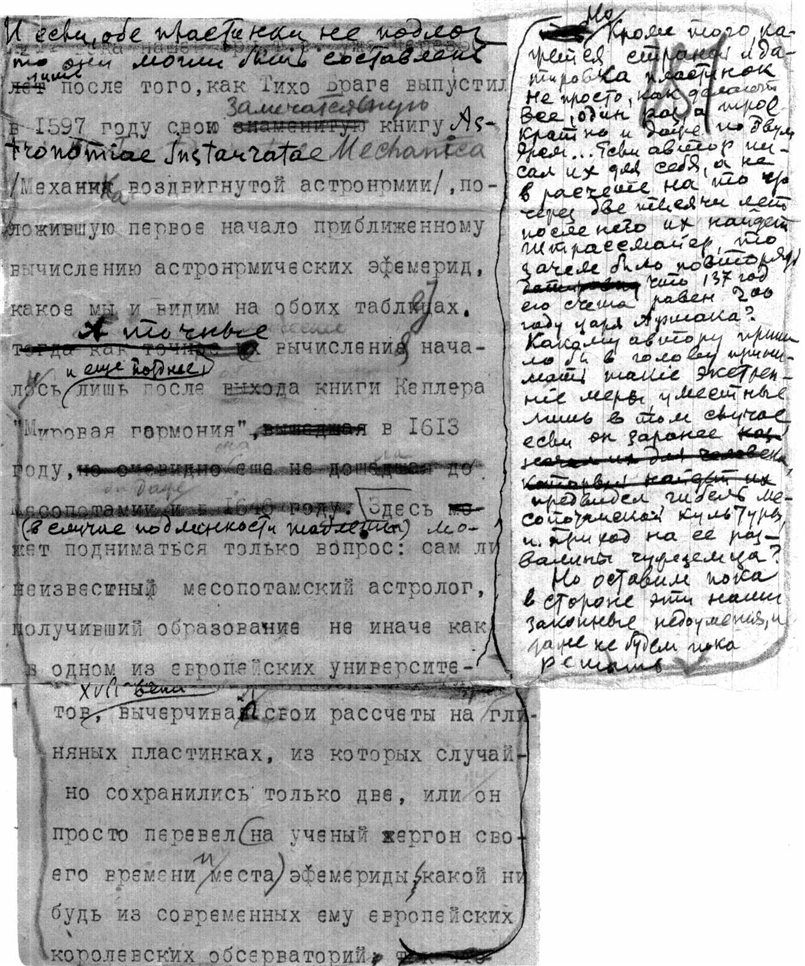 И если обе пластинки не подлог
то они могли быть составлены
лишь
лет после того, как Тихо Браге выпустил
Замечательную
в 1597 году свою знаменитую книгу As-
tronomiae Instauratae Mechanica
/Механика воздвигнутой астронрмии/, по-
ложившую первое начало приближенному
вычислению астронрмических эфемерид,
какое мы и видим на обоих таблицах.
А точные
тогда как точное их вычисление нача-
и еще позднее,
лось лишь после выхода книги Кеплера
"Мировая гормония", вышедшая в 1613
году, но очевидно еще не дошедшая до
месопотамии и в 1613 году. Здесь
(в случае подлинности таблеток) мо-
жет подниматься только вопрос: сам ли
неизвестный месопотамский астролог,
получивший образование не иначе как
в одном из европейских университе-
XVII века
тов, вычерчивал свои рассчеты на гли-
няных пластинках, из которых случай-
но сохранились только две, или он
просто перевел на ученый жергон сво-
его времени и места) эфемериды, какой ни
будь из современных ему европейских
королевских обсерваторий,
Но
Кроме того, ка-
жется странна и да-
тировка пластинок
не просто, как делают
все, один раз, а трое
кратно и даже по двум
эрам... Если автор пи-
сал их для себя, а не
в расчете на то что
через две тысячи лет
после него их найдет
Штрассмайер, то
зачем было повторять
что 137 год
его счета равен 200
году царя Аршака?
Какому автору пришло
бы в голову прини-
мать такие экстрен-
ние меры уместные
лишь в том случае
если он заранее
которыя найдет их
предвидел гибель ме-
сопотамской культуры,
и приход на ее раз-
валины чужеземца?
Но оставим пока
в стороне эти наши
законные недоумения, и
не будем пока
решать